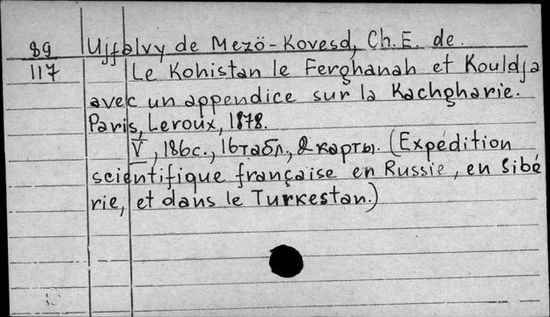 89 Ujfalvy de Mezö-Kovesd, Ch. E. de.
117 Le Kohistan le Ferghanah et Kouldja
avec un appendice sur la Kachgharie.
Paris, Leroux, 1878.
V, 186с., 16табл., 2 карты. (Expédition
scientifique française en Russie, en Sibé
rie, et dans le Turkestan.)